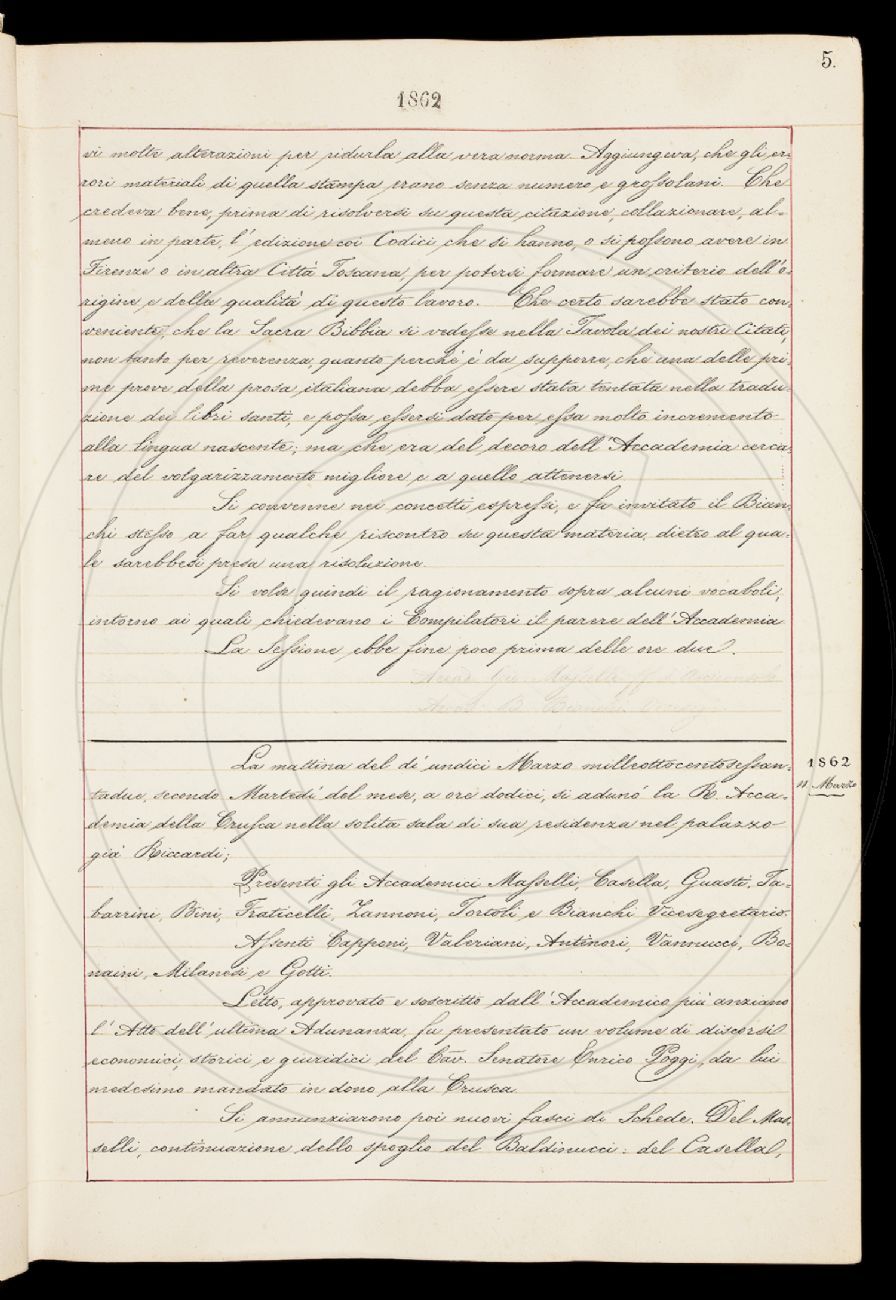 5.
1862
vi molte alterazioni per ridurla alla vera norma. Aggiungeva, che gli er-
rori materiali di quella stampa erano senza numero e grossolani. Che
credeva bene, prima di risolversi su questa citazione, collazionare, al-
meno in parte, l'edizione coi Codici che si hanno, o si possono avere in
Firenze o in altra Città Toscana, per potersi formare un criterio dell'o-
rigine e della qualità di questo lavoro. Che certo sarebbe stato con-
veniente, che la Sacra Bibbia si vedesse nella Tavola dei nostri Citati,
non tanto per reverenza, quanto perchè è da supporre, che una delle pri-
me prove della prosa italiana debba essere stata tentata nella tradu-
zione dei libri santi, e possa essersi dato per essa molto incremento
alla lingua nascente; ma che era del decoro dell'Accademia cerca-
re del volgarizzamento migliore e a quello attenersi.
Si convenne nei concetti espressi, e fu invitato il Bian-
chi stesso a far qualche riscontro su questa materia, dietro al qua-
le sarebbesi presa una risoluzione.
Si volse quindi il ragionamento sopra alcuni vocaboli,
intorno ai quali chiedevano i Compilatori il parere dell'Accademia
La Sessione ebbe fine poco prima delle ore due.
La mattina del dì undici Marzo milleottocentosessan-
tadue, secondo Martedì del mese, a ore dodici, si adunò la R. Acca-
demia della Crusca nella solita sala di sua residenza nel palazzo
già Riccardi;
1862
11 Marzo
Presenti gli Accademici Masselli, Casella, Guasti, Ta-
barrini, Bini, Fraticelli, Zannoni, Tortoli e Bianchi Vicesegretario.
Assenti Capponi, Valeriani, Antinori, Vannucci, Bo-
naini, Milanesi e Gotti.
Letto, approvato e soscritto dall'Accademico più anziano
l'Atto dell'ultima Adunanza, fu presentato un volume di discorsi
economici, storici e giuridici del Cav. Senatore Enrico Poggi, da lui
medesimo mandato in dono alla Crusca.
Si annunziarono poi nuovi fasci di Schede. Del Mas-
selli, continuazione dello spoglio del Baldinucci: del Casella,